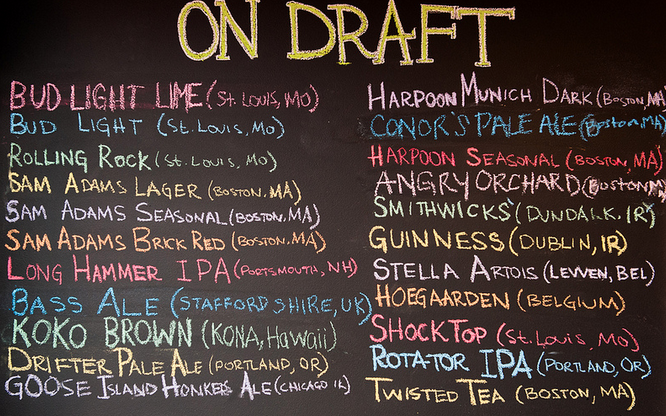 ON DRAFT
BUD LIGHT LIME (St. Louis, MO)
BUD LIGHT (St. Louis, Mo)
ROLLING ROCK (St. Louis, Mo)
SAM ADAMS LAGER (BOSTON, MA)
SAM ADAMS SEASONAL (BOSTON, MA)
SAM ADAMS BRICK RED (BOSTON, MA)
LONG HAMMER IPA (PORTSMOUTH, NH)
BASS ALE (STAFFORDSHIRE, UK)
KOKO BROWN (KONA, Hawaii)
DRIFTER PALE ALE (PORTLAND, OR)
GOOSE ISLAND HONKERS ALE (CHICAGO IL)
HARPOON MUNICH DARK (BOSTON, MA)
CONOR'S PALE ALE (Boston, MA)
HARPOON SEASONAL (BOSTON, MA)
ANGRY ORCHARD (BOSTON, MA)
SMITHWICKS (DUNDARK, IR)
GUINNESS (DUBLIN, IR)
STELLA ARTOIS (LEVVEN, BEL)
HOEGAARDEN (BELGIUM)
SHOCK TOP (St. Louis, Mo)
ROTATOR IPA (PORTLAND, OR)
TWISTED TEA (BOSTON, MA)